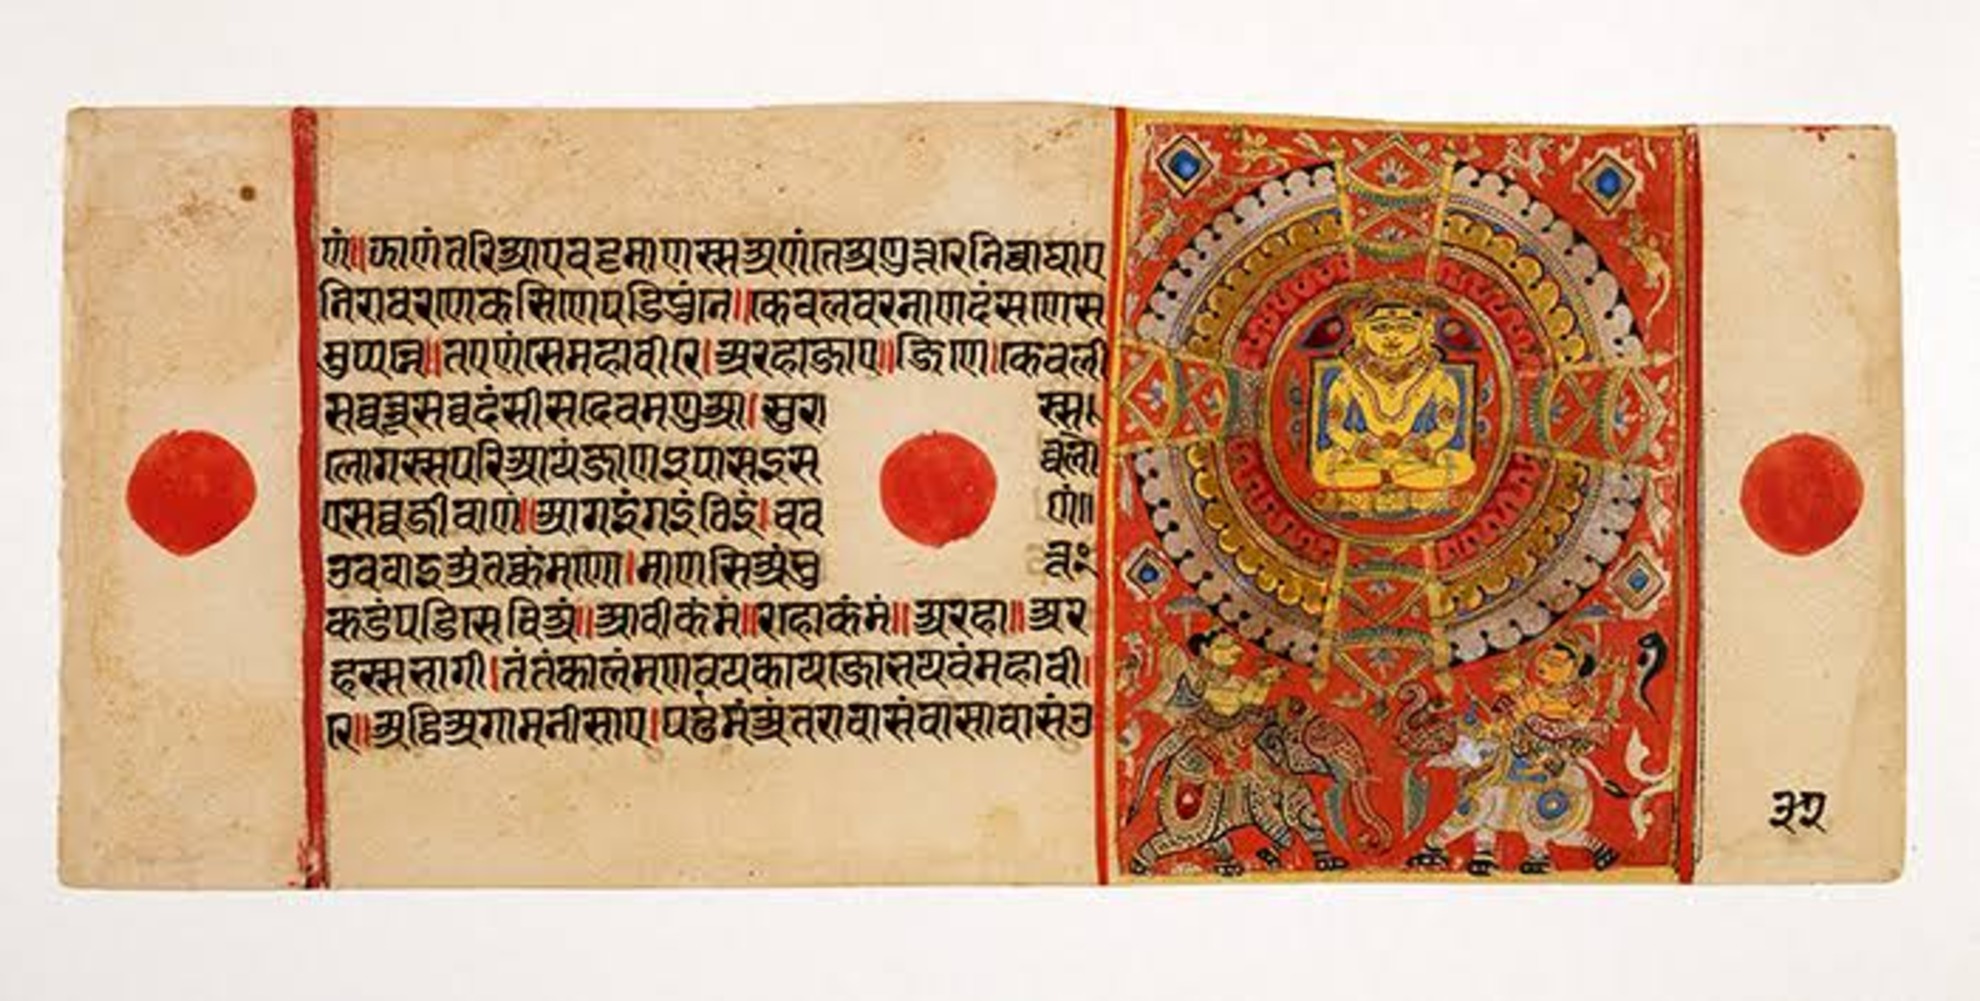 णं॥काणंतरिआएवट्टमाणस्सअणंतेअणुत्तरेनिव्वाघाए
निरावरणेकसिणेपडिपुंने॥केवलवरनाणदंसणेस
मुप्पन्ने॥तएणंसेमहावीरे।अरहाजाए॥जिणे।केवली
सव्वन्नूसव्वदंसीसदेवमणुआ।सुरा स्स।
लोगस्सपरिआयंजाणइपासइस व्वलो
एसव्वजीवाणं॥आगइंगइंठिइं।चव णं॥
उववाइअंतक्कंमाणो।माणसिअंभु
कडंपडिसेविअं॥आवीकंमं॥रहोकंमं॥अरहा॥अर
हस्सभागी।तंतंकालंमणवयकाय
रे॥अट्ठिअगामनीसाए।पढमंअंतरावासंवासावासंउ